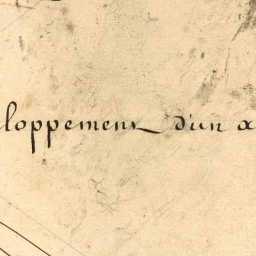 loppement d'un a